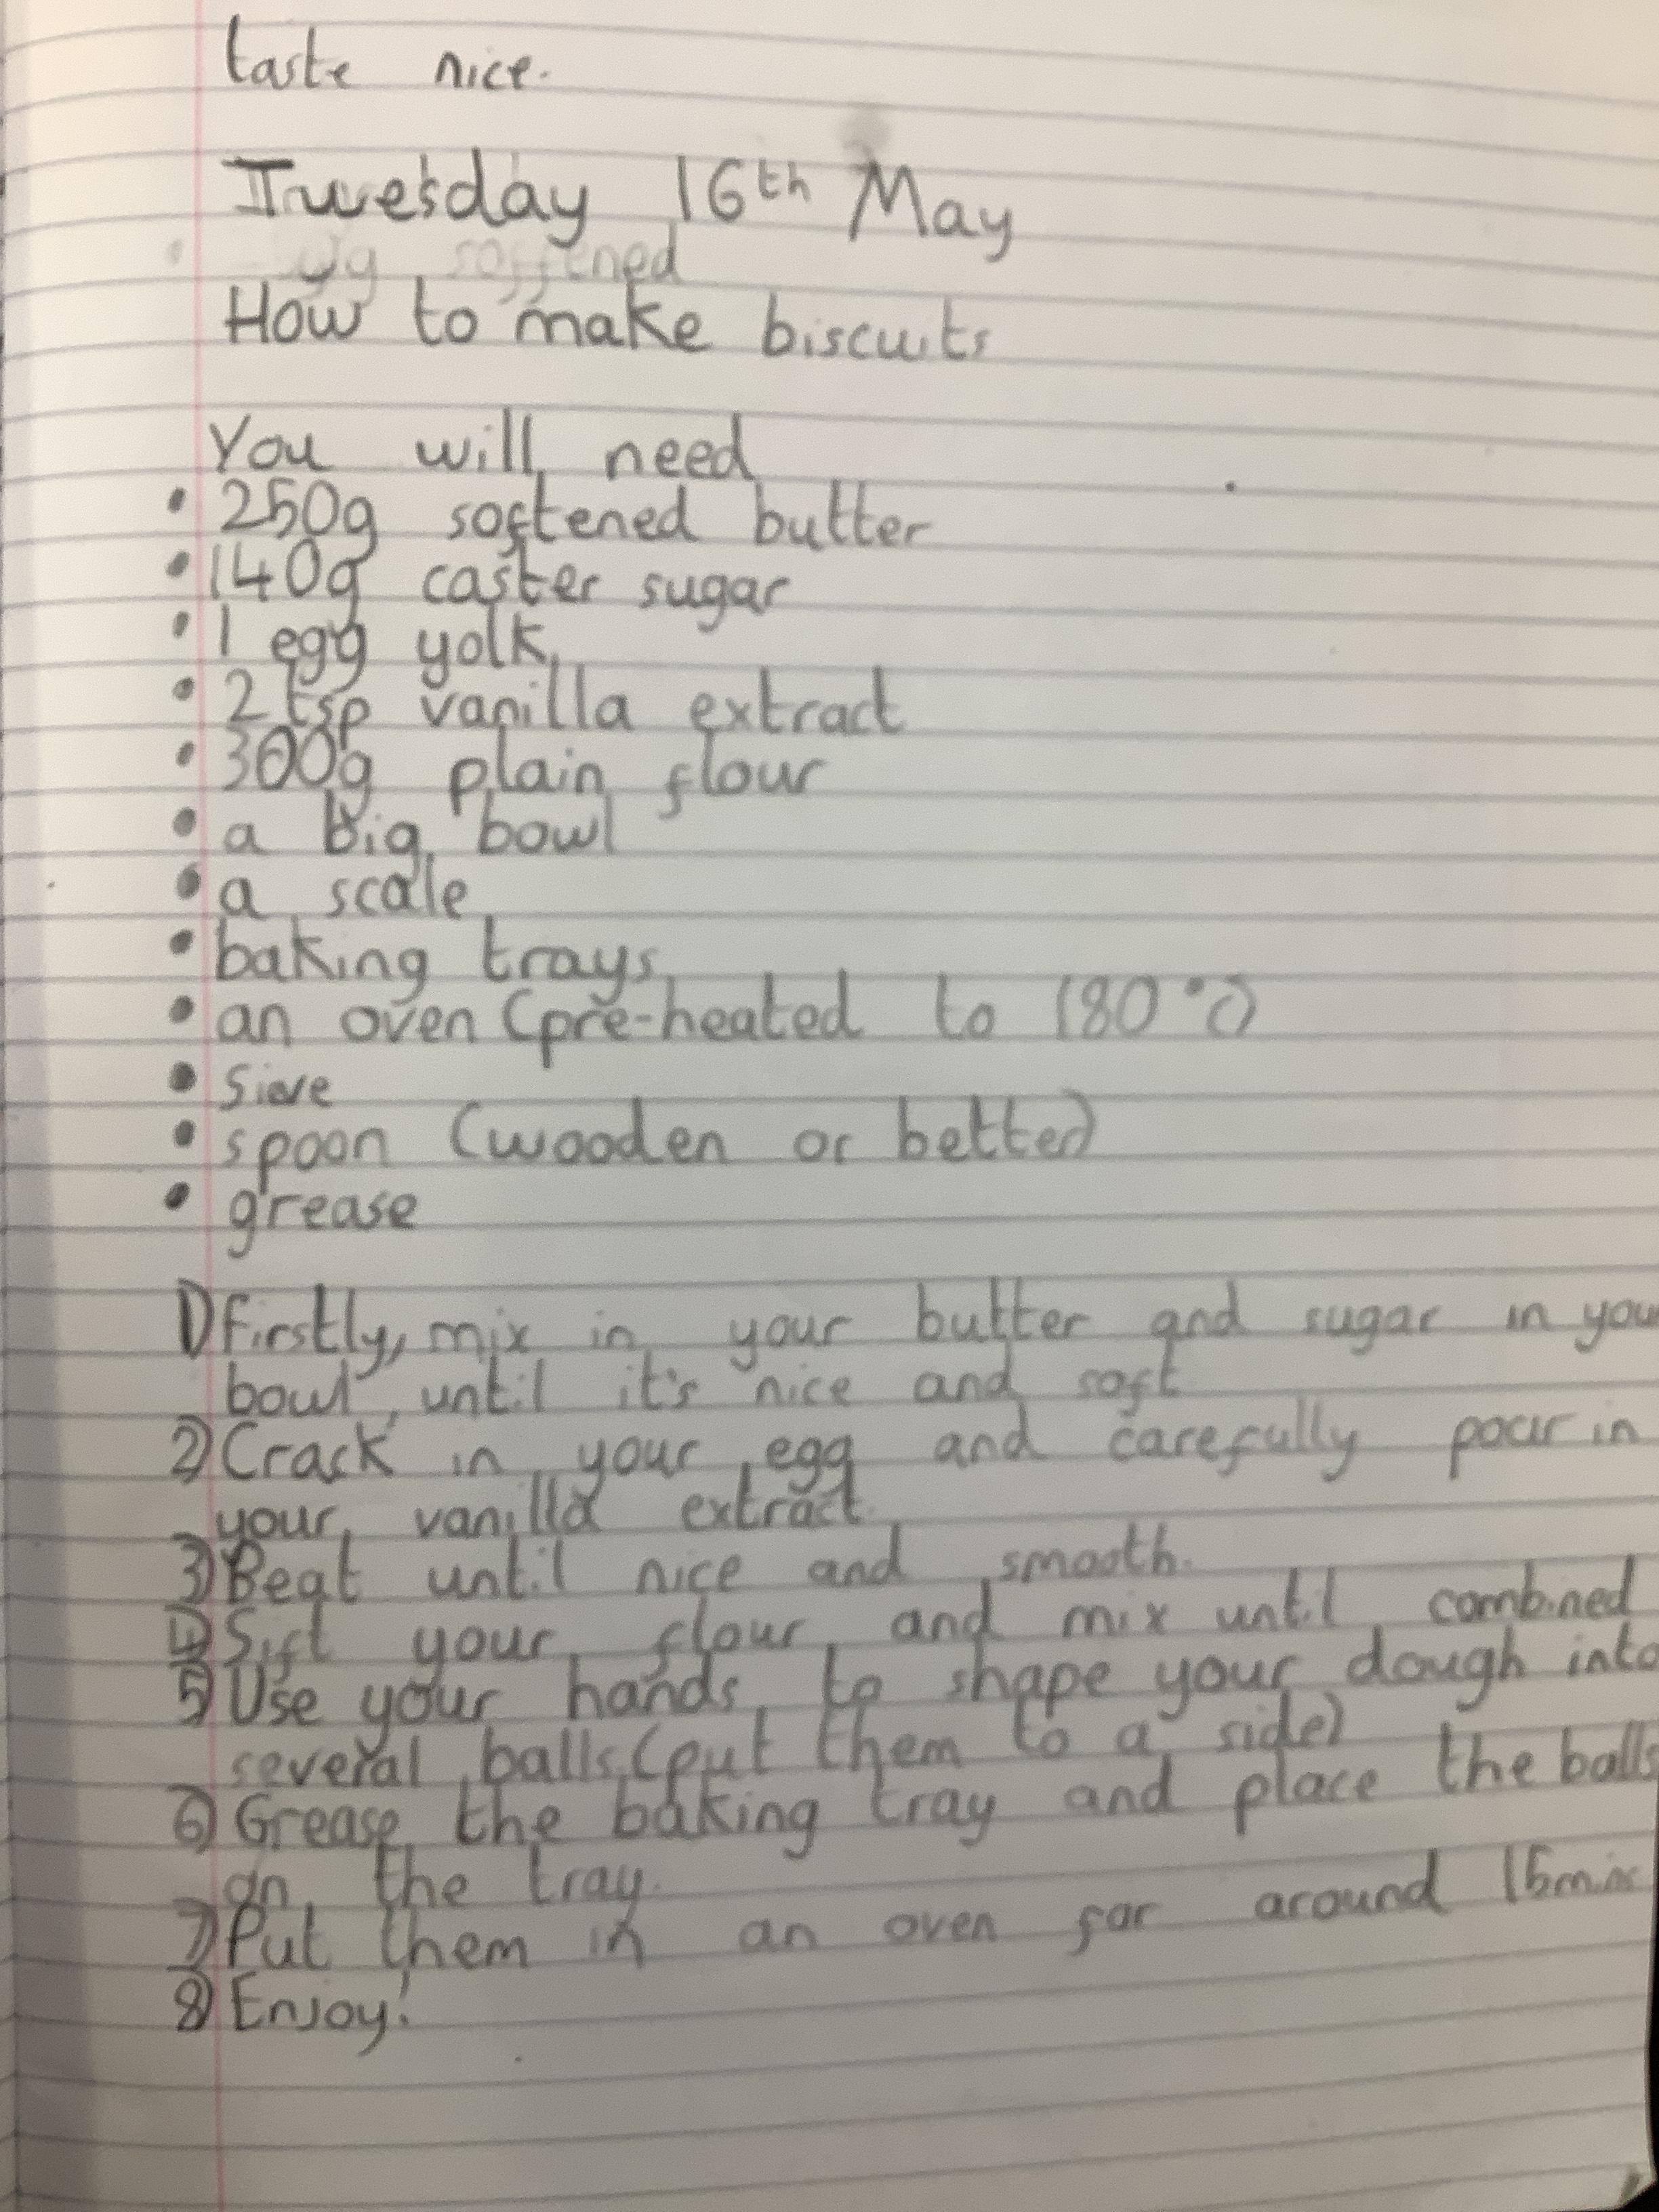 taste nice.
Tuesday 16th May
softened
How to make biscuits
You will need
• 250g softened butter
• 140g caster sugar
• 1 egg yolk
• 2 tsp vanilla extract
• 300g plain flour
• a big bowl
• a scale
• baking trays
• an oven (pre-heated to 180°C)
• sieve
• spoon (wooden or better)
• grease
1) Firstly, mix in your butter and sugar in you
bowl, until it's nice and soft
2) Crack in your egg and carefully pour in
your vanilla extract.
3) Beat until nice and smooth.
4) Sift your flour and mix until combined
5) Use your hands to shape your dough into
several balls (put them to a side)
6) Grease the baking tray and place the balls
on the tray.
7) Put them in an oven for around 15min
8) Enjoy!